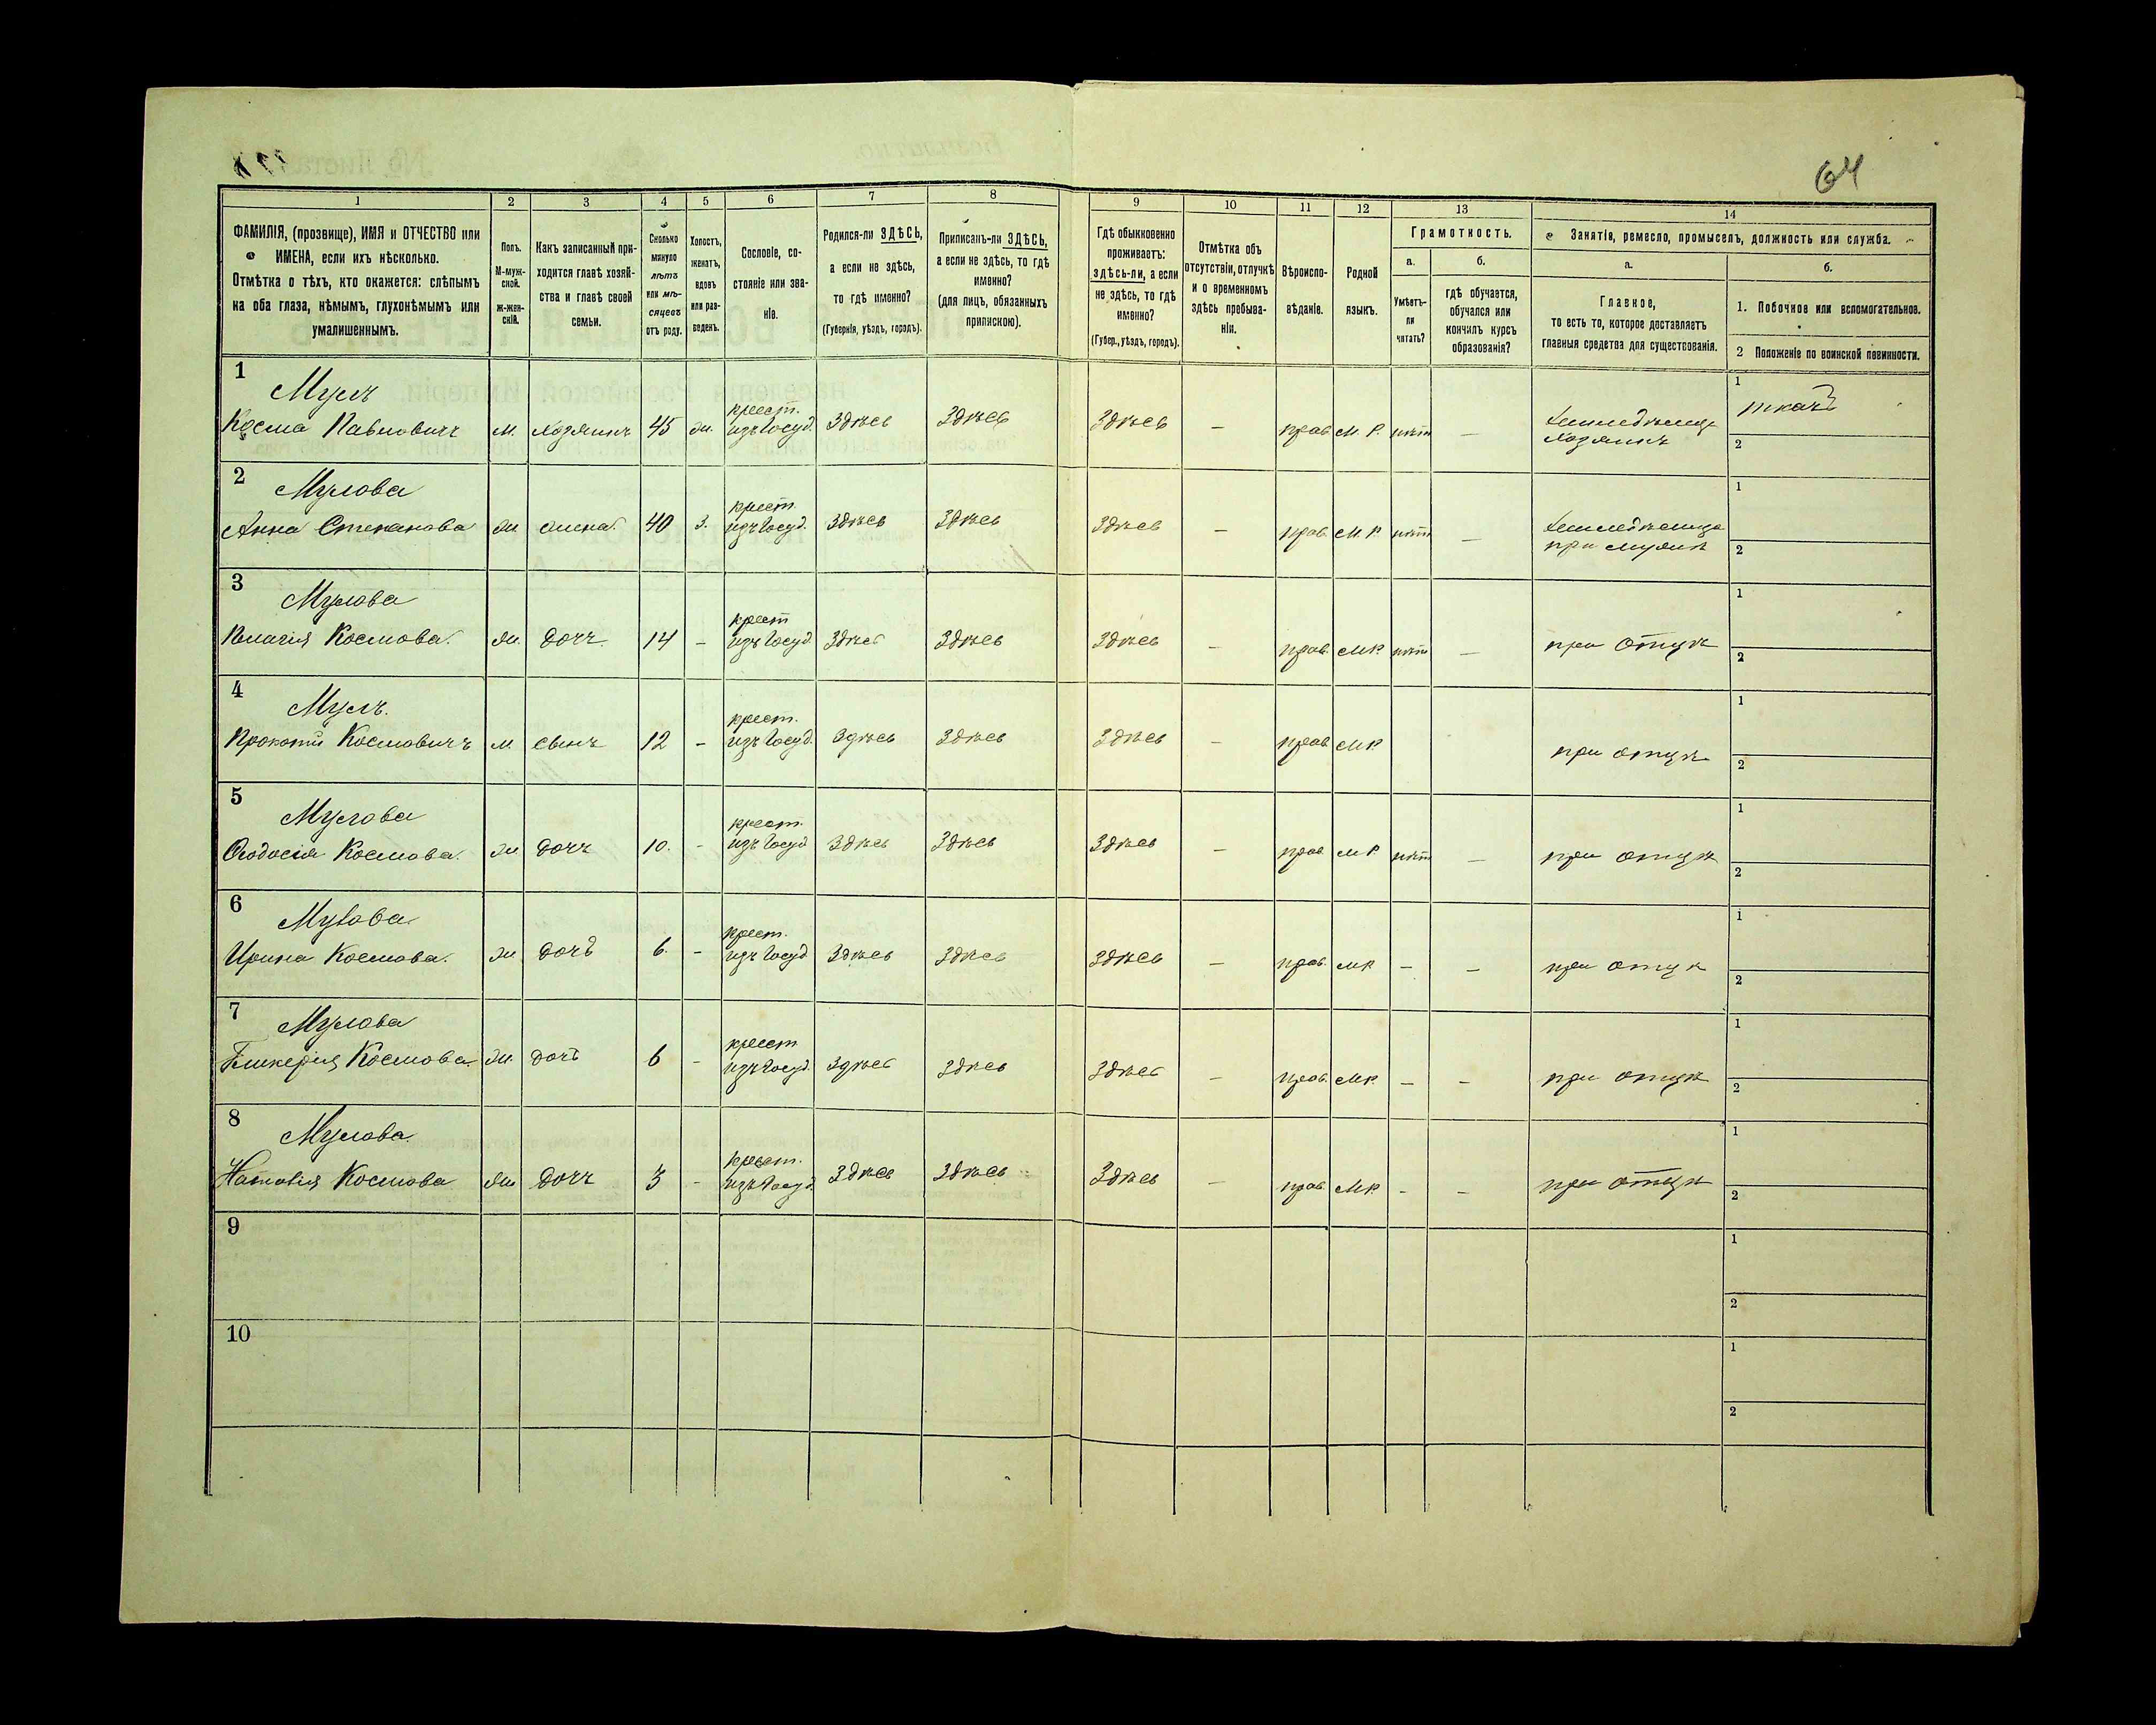 64
1 2 3 4 5 6 7 8 9 10 11 12 13 14
ФАМИЛІЯ, (прозвище), ИМЯ и ОТЧЕСТВО или
ИМЕНА, если ихъ нѣсколько.
Отмѣтка о тѣхъ, кто окажется: слѣпымъ
на оба глаза, нѣмымъ, глухонѣмымъ или
умалишеннымъ.
Полъ.
М-муж-
ской.
ж-жен-
скій.
Какъ записанный при-
ходится главѣ хозяй-
ства и главѣ своей
семьи.
Сколько
минуло
лѣтъ
или мѣ-
сяцевъ
отъ роду.
Холостъ,
женатъ,
вдовъ
или раз-
веденъ.
Сословіе, со-
стояніе или зва-
ніе.
Родился-ли ЗДѢСЬ,
а если не здѣсь,
то гдѣ именно?
(Губернія, уѣздъ, городъ).
Приписанъ-ли ЗДѢСЬ,
а если не здѣсь, то гдѣ
именно?
(для лицъ, обязанныхъ
припискою).
Гдѣ обыкновенно
проживаетъ:
здѣсь-ли, а если
не здѣсь, то гдѣ
именно?
(Губер., уѣздъ, городъ).
Отмѣтка объ
отсутствіи, отлучкѣ
и о временномъ
здѣсь пребыва-
ніи.
Вѣроиспо-
вѣданіе.
Родной
языкъ.
Грамотность.
а.
Умѣетъ-
ли
читать?
б.
гдѣ обучается,
обучался или
кончилъ курсъ
образованія?
Занятія, ремесло, промыселъ, должность или служба.
а.
Главное,
то есть то, которое доставляетъ
главныя средства для существованія.
б.
1. Побочное или вспомогательное.
2 Положеніе по воинской повинности.
1
Мулъ
крест.
1 ткачъ
Косма Павловичъ м. хозяинъ 45 ж. изъ Госуд. Здѣсь Здѣсь Здѣсь — прав. М. Р. нѣт — Земледѣлецъ
хозяинъ
2
2
Мулова
крест.
1
Анна Степанова ж жена 40 з. изъ Госуд. Здѣсь Здѣсь Здѣсь — прав. М. Р. нѣт —
при мужѣ
2
3
Мулова
крест
1
Космова. ж. дочъ 14 - изъ Госуд. Здѣсь Здѣсь Здѣсь — прав. МР. нѣт — при отцѣ
2
4
Мулъ.
крест.
1
Прокопій Космовичъ м. сынъ 12 - изъ Госуд. Здѣсь Здѣсь Здѣсь — прав МР при отцѣ
2
5
Мулова
крест.
1
Ѳеодосія Космова. ж дочъ 10. - изъ Госуд Здѣсь Здѣсь Здѣсь — прав МР нѣт — при отцѣ
2
6
Мулова.
крест.
1
Ирина Космова. ж дочь 6. - изъ Госуд Здѣсь Здѣсь Здѣсь — прав. МР — — при отцѣ
2
7
Мулова
крест
1
Гликерія Космова. ж. дочь 6 - изъ Госуд. Здѣсь Здѣсь Здѣсь — прав. МР. — — при отцѣ
2
8
Мулова.
крест.
1
Космова ж дочъ 3 - изъ Госуд. Здѣсь Здѣсь Здѣсь — прав. МР. - — при отцѣ
2
9
1
2
10
1
2